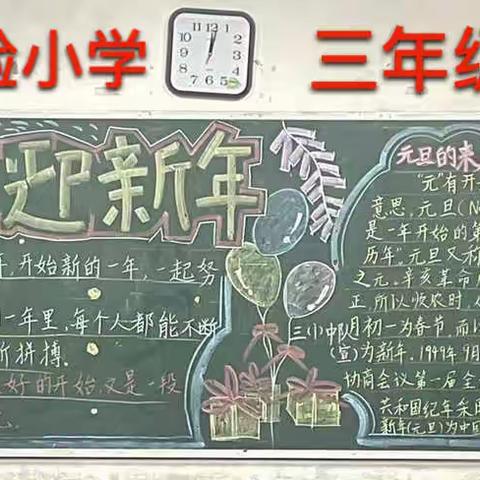 验小学 三年级
迎新年
年,开始新的一年,一起努
一年里,每个人都能不断
所拼搏.
好的开始,又是一段
三小中队
(宣)
元旦的来
"元"有开
意思,元旦(Ne
是一年开始的第
历年".元旦又称
之元,辛亥革命
正,所以顺农时,
月初一为春节,而以
为新年.1949年9月
协商会议第一届全
共和国纪年采用
新年(元旦)为中国